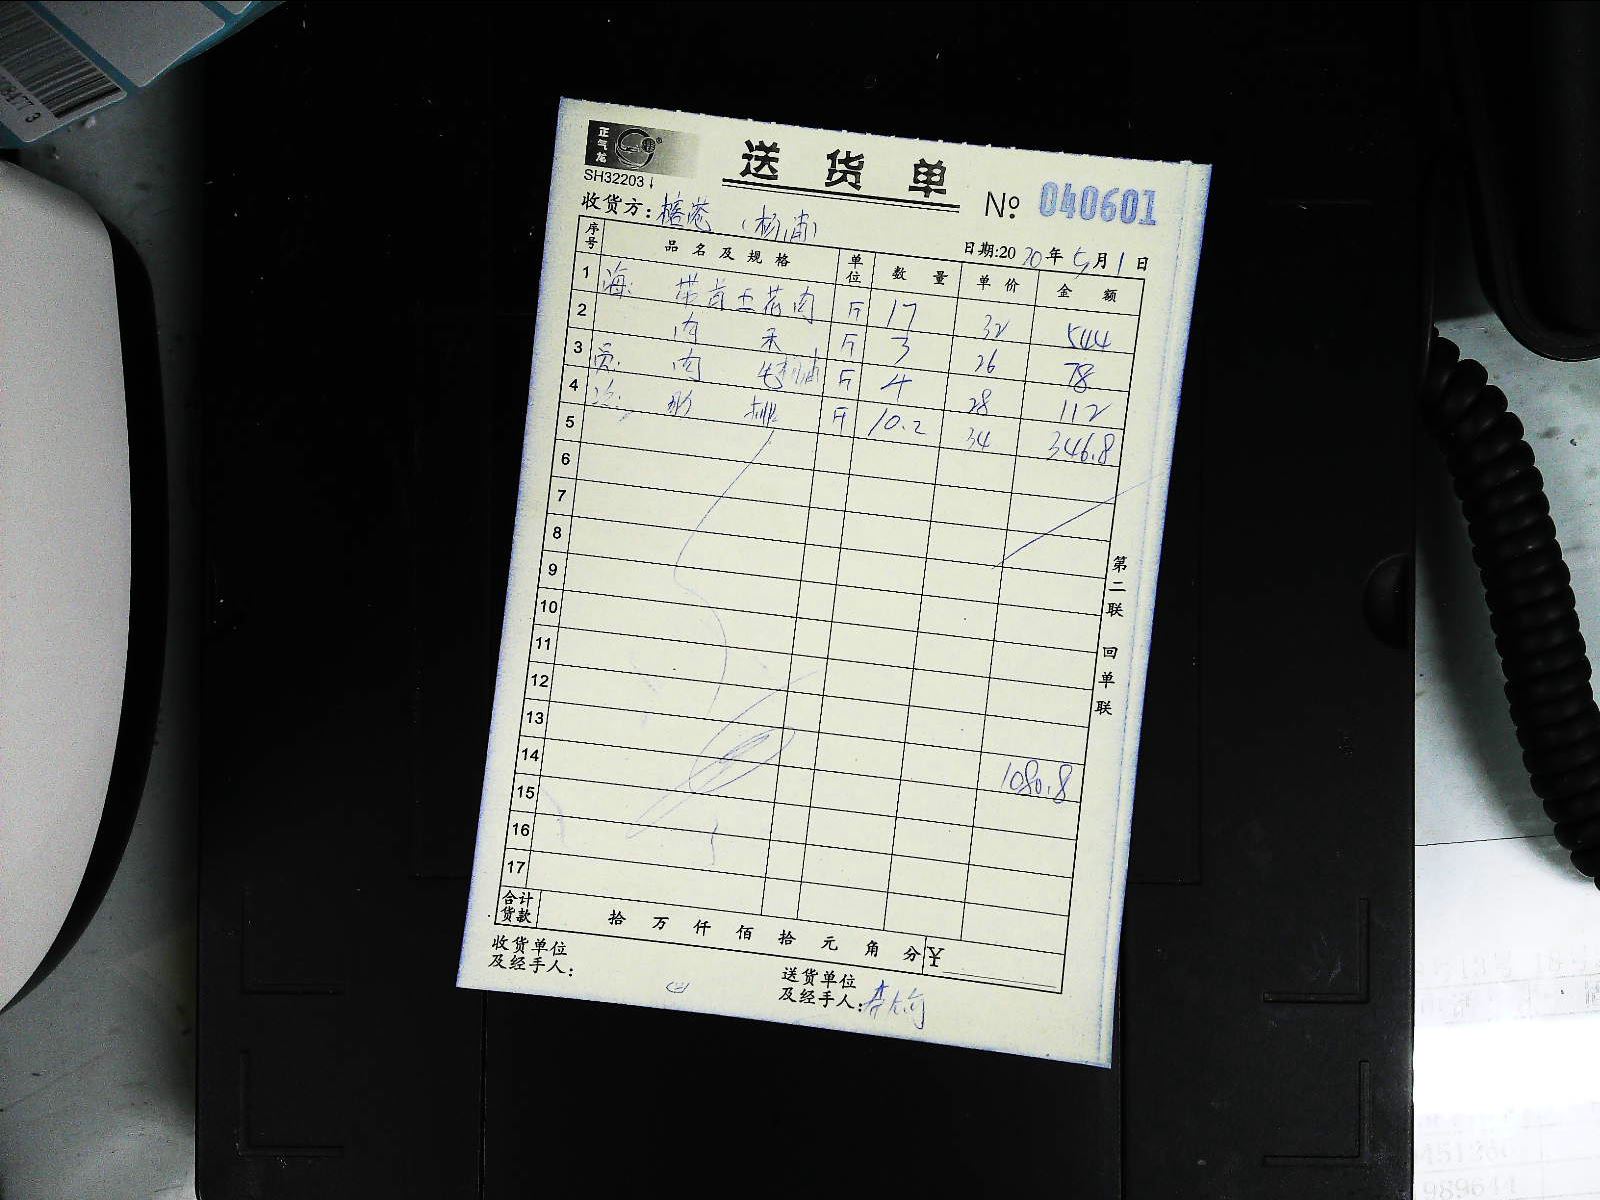 正气龙
SH32203
送货单
№ 040601
收货方: 榕港 (杨浦)
日期:2020年5月1日
序号 品名及规格 单位 数量 单价 金额
1 海: 带皮五花肉 斤 17 32 544
2 肉 末 斤 3 26 78
3 肉 斤 4 28 112
4 排 斤 10.2 34 346.8
5
6
7
8
9
10
11
12
13
14 1080.8
15
16
17
合计货款 拾 万 仟 佰 拾 元 角 分 ¥
收货单位
及经手人:
送货单位
及经手人:
第二联 回单联
3